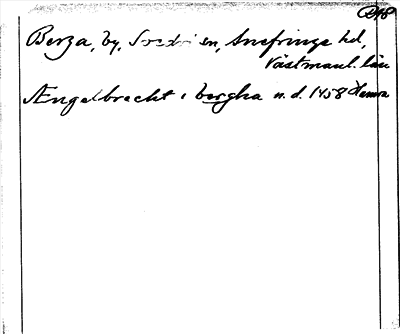 Berga, by, sn, Snefringe hd,
Västmanl. län
Ængelbrecht i bergha n.d. 1458